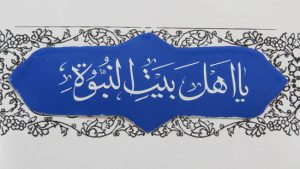 يا اهل بيت النبوة